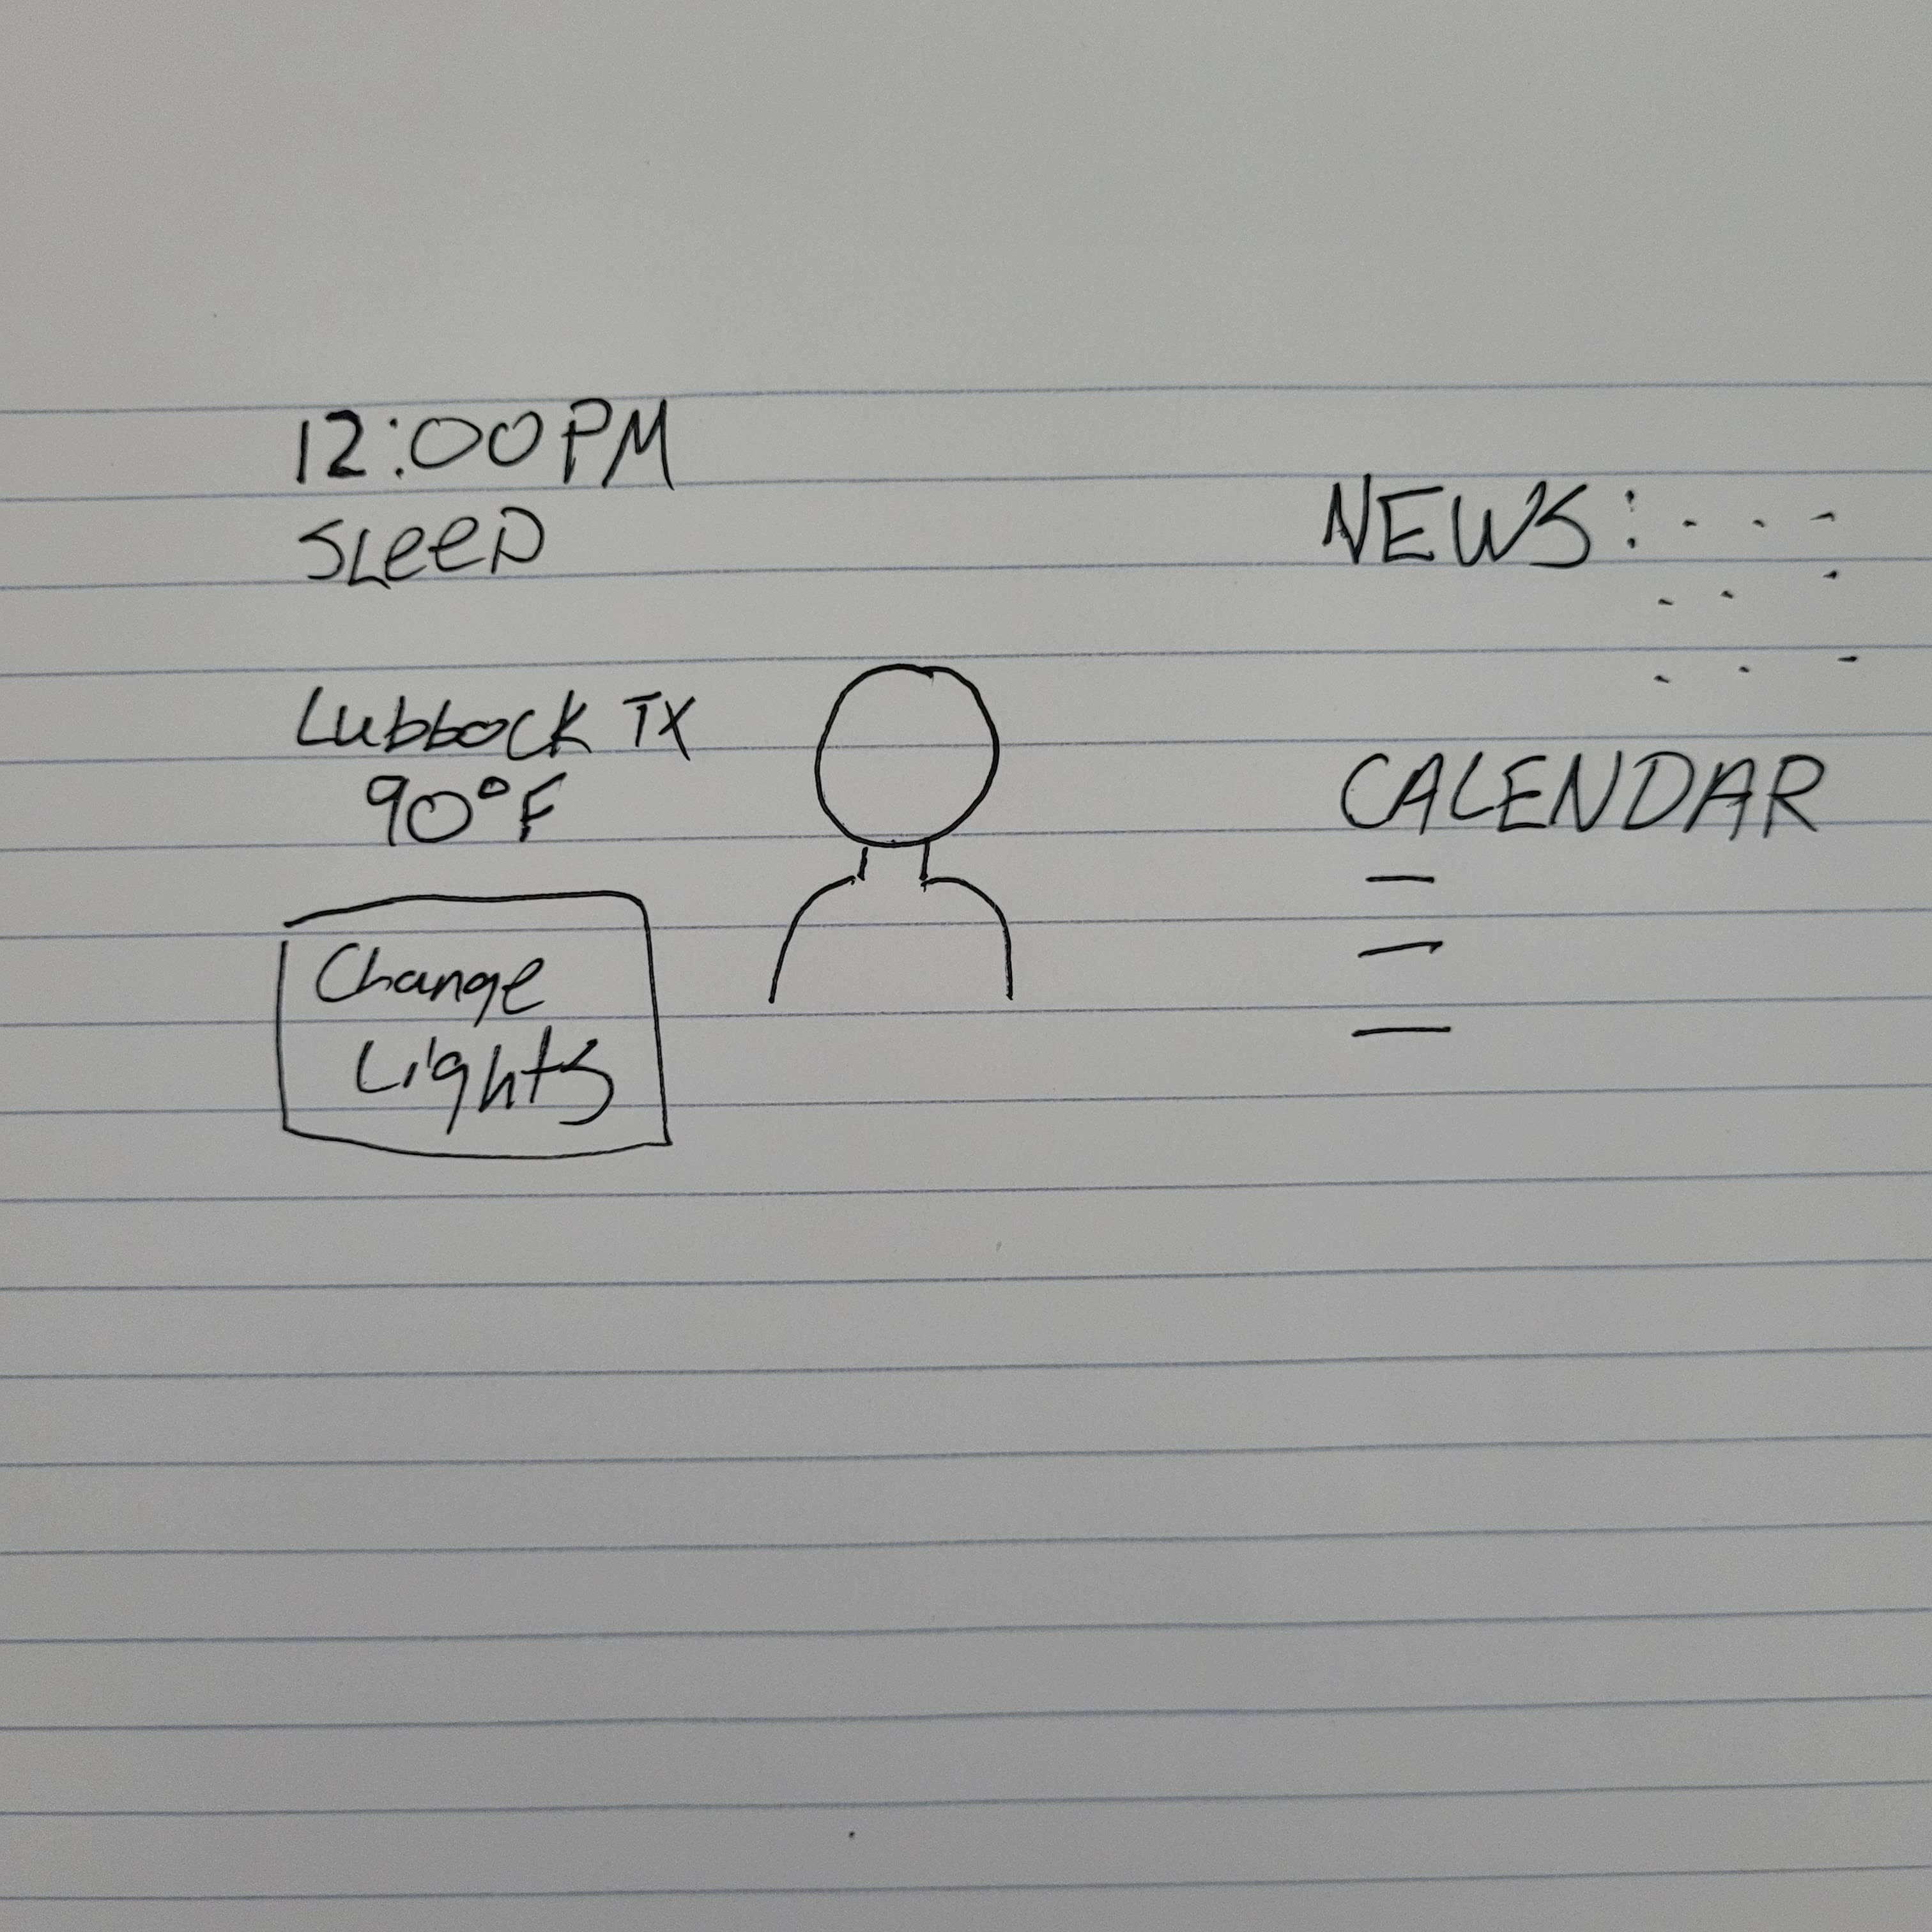 12:00 PM
SLeeP
Lubbock TX
90°F
Change
Lights
NEWS:
CALENDAR